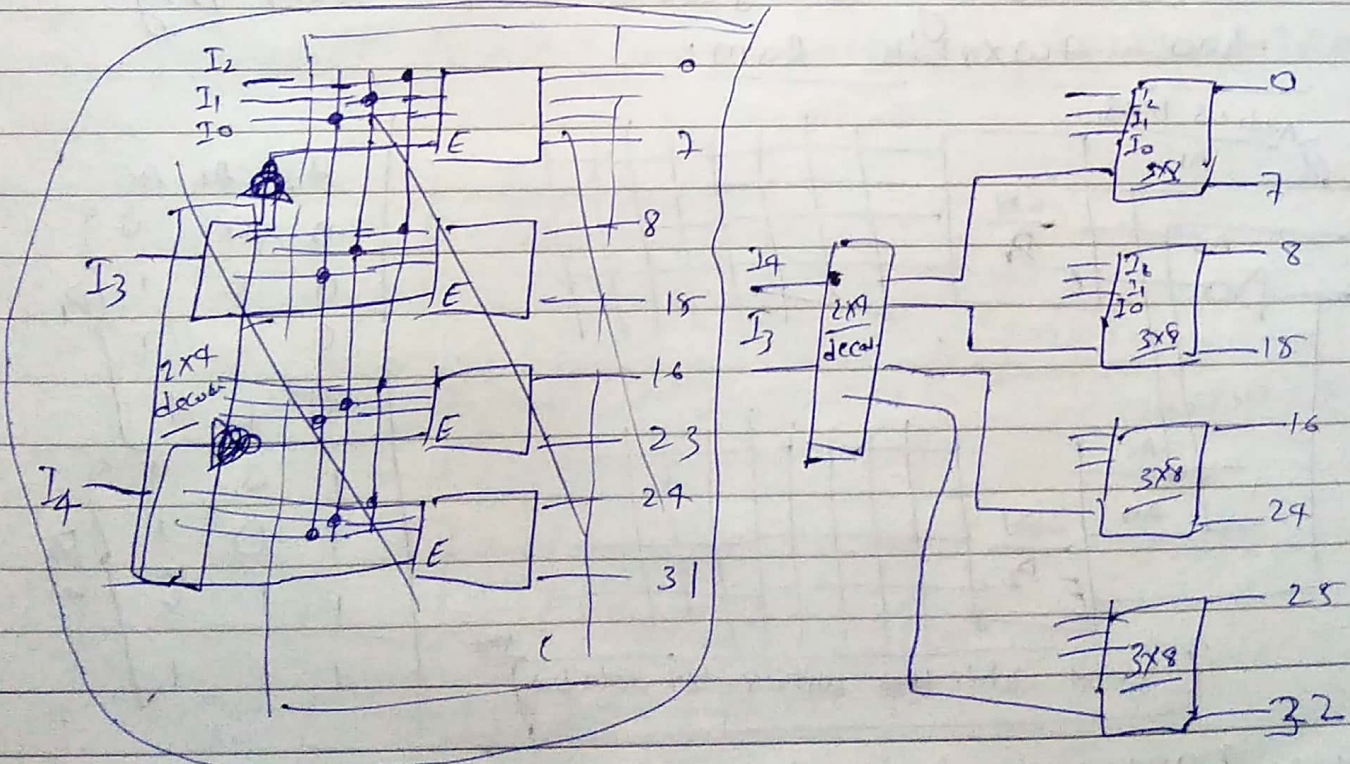 I2
I1
I0
E
0
7
I3
E
8
15
2x4
decoder
E
16
23
I4
E
24
31
I4
I3
2x4
decod
I2
I1
I0
3x8
0
7
I2
I1
I0
3x8
8
15
3x8
16
24
3x8
25
32